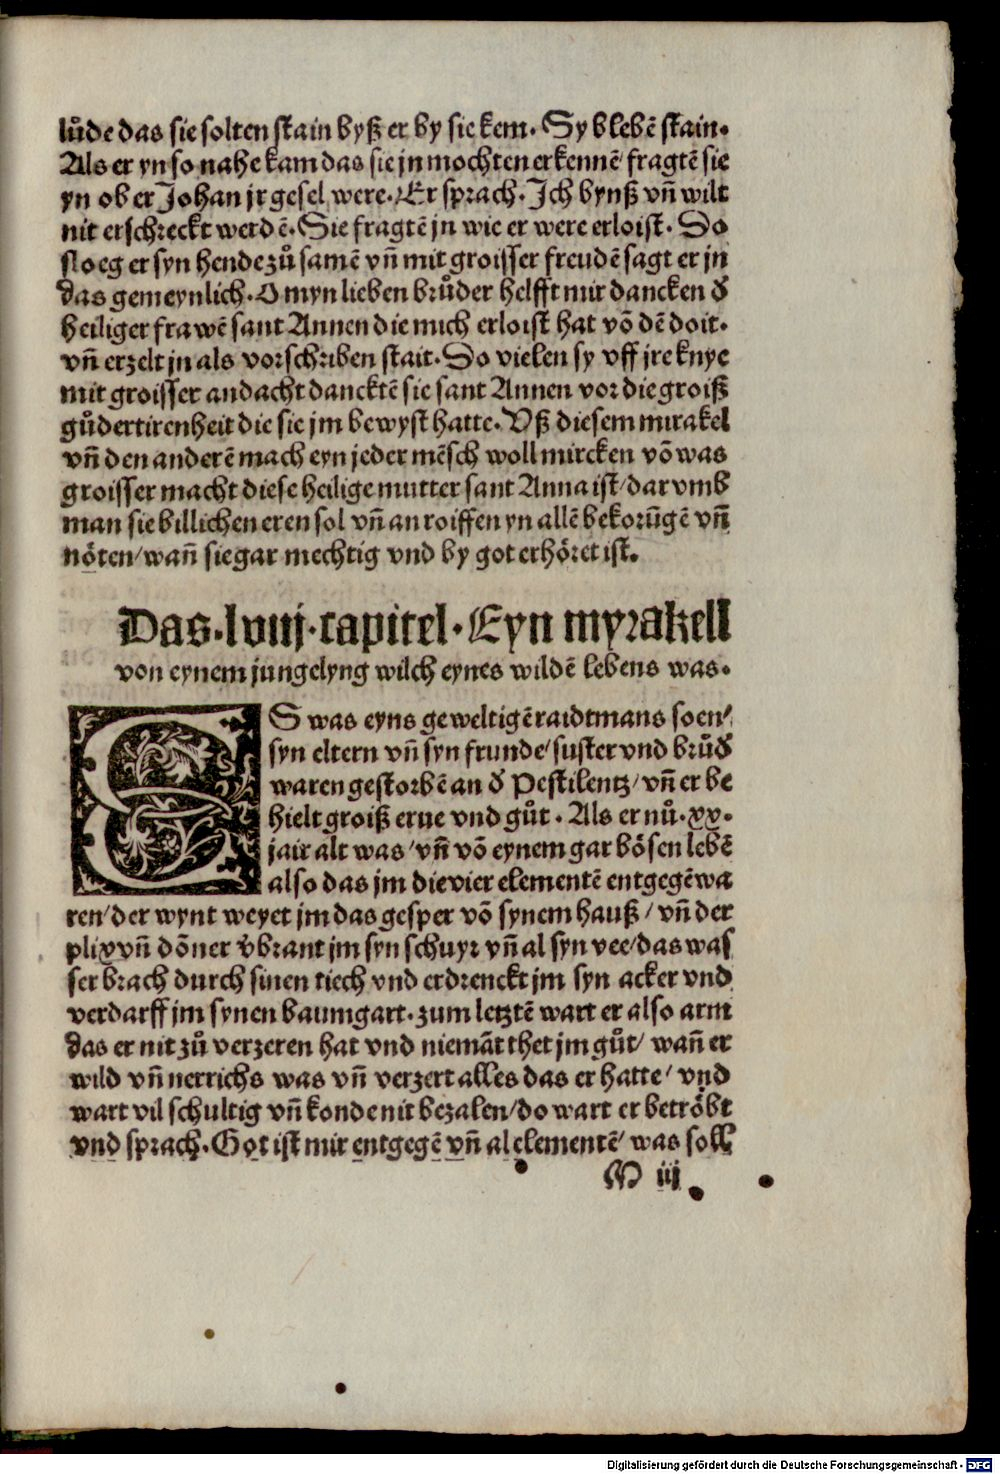 lůde das sie solten stain byß er by sie kem. Sy blebē stain.
Als er yn so nahe kam das sie jn mochten erkennē/ fragtē sie
yn ob er Johan jr gesel were. Er sprach. Ich bynß vñ wilt
nit erschreckt werdē. Sie fragtē jn wie er were erloist. Do
sloeg er syn hende zů samē vñ mit groisser freudē sagt er jn
das gemeynlich. O myn lieben brůder helfft mir dancken đ
heiliger frawē sant Annen die mich erloist hat vō dē doit.
vñ erzelt jn als vorschriben stait. Do vielen sy vff jre knye
mit groisser andacht dancktē sie sant Annen vor die groiß
gůdertirenheit die sie jm bewyst hatte. Vß diesem mirakel
vñ den anderē mach eyn jeder mēsch woll mircken vō was
groisser macht diese heilige mutter sant Anna ist/ dar vmb
man sie billichen eren sol vñ an roiffen yn allē bekorūgē vñ
nöten/ wañ sie gar mechtig vnd by got erhöret ist.
Das. lviij. capitel. Eyn myrakell
von eynem jungelyng wilch eynes wildē lebens was.
ES was eyns geweltigē raidtmans soen/
syn eltern vñ syn frunde/ suster vnd brůđ
waren gestorbē an đ Pestilentz/ vñ er be
hielt groiß erue vnd gůt. Als er nů. xx.
jair alt was/ vñ vō eynem gar bösen lebē
also das jm die vier elementē entgegē wa
ren/ der wynt weyet jm das gesper vō synem hauß/ vñ der
plix vñ dōner v̄brant jm syn schuyr vñ al syn vee/ das was
ser brach durch sinen tiech vnd erdrenckt jm syn acker vnd
verdarff jm synen baumgart. zum letztē wart er also arm
das er nit zů verzeren hat vnd niemāt thet jm gůt/ wañ er
wild vñ nerrichs was vñ verzert alles das er hatte/ vnd
wart vil schultig vñ konde nit bezalen/ do wart er betröbt
vnd sprach. Got ist mir entgegē vñ al elementē/ was soll
M iij
Digitalisierung gefördert durch die Deutsche Forschungsgemeinschaft - DFG